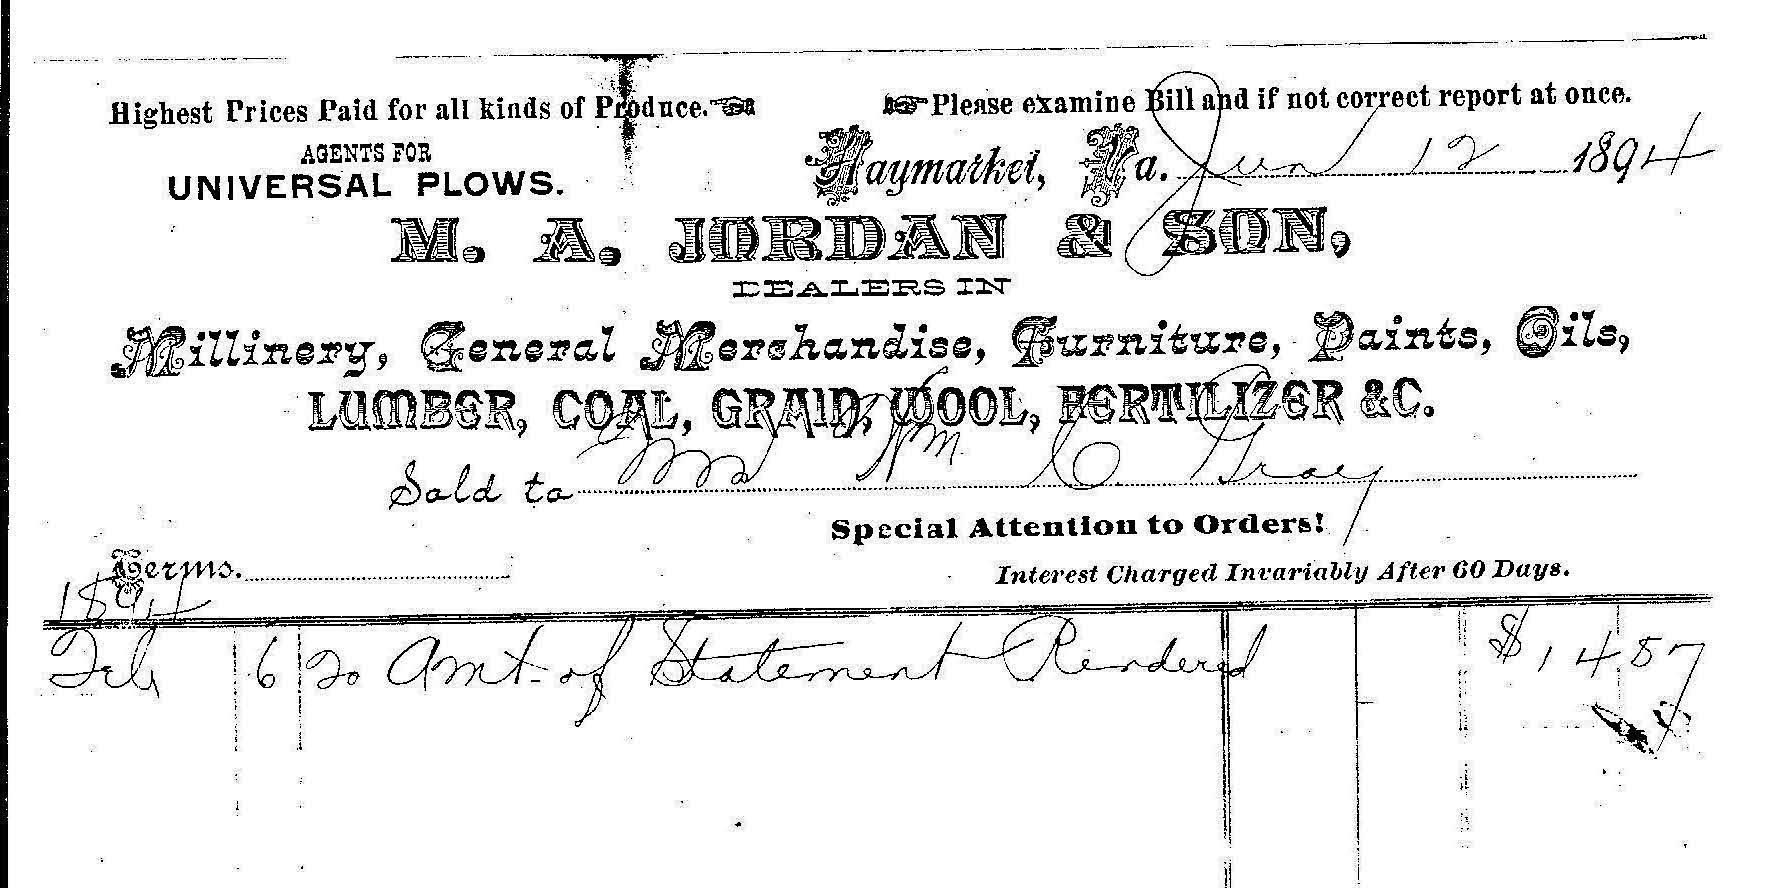 Highest Prices Paid for all kinds of Produce. Please examine Bill and if not correct report at once.
AGENTS FOR
UNIVERSAL PLOWS.
Haymarket, Va. Jun 12 1894
M. A. JORDAN & SON,
DEALERS IN
Millinery, General Merchandise, Furniture, Paints, Oils,
LUMBER, COAL, GRAIN, WOOL, FERTILIZER &C.
Sold to Mrs Wm C Gray
Special Attention to Orders!
Terms. Interest Charged Invariably After 60 Days.
1894
Feb 6 To Amt. of Statement Rendered $14 57